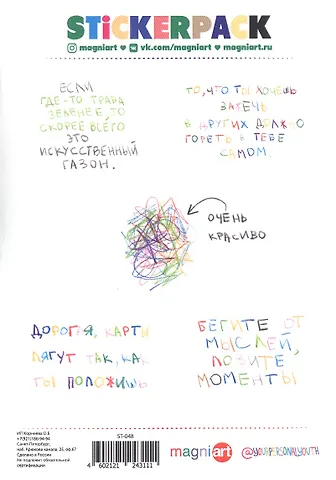 STiCKERPACK
magniart ♥ vk.com/magniart ♥ magniart.ru
ЕСЛИ
ГДЕ-ТО ТРАВА
ЗЕЛЕНЕЕ, ТО
СКОРЕЕ ВСЕГО
ЭТО
ИСКУССТВЕННЫЙ
ГАЗОН.
ТО, ЧТО ТЫ ХОЧЕШЬ
ЗАЖЕЧЬ
В ДРУГИХ ДОЛЖНО
ГОРЕТЬ В ТЕБЕ
САМОМ.
ОЧЕНЬ
КРАСИВО
ДОРОГАЯ, КАРТЫ
ЛЯГУТ ТАК, КАК
ТЫ ПОЛОЖИШЬ
БЕГИТЕ ОТ
МЫСЛЕЙ,
ЛОВИТЕ,
МОМЕНТЫ
ИП Корнеева О.Б.
+7(921)186-94-94
Санкт-Петербург,
наб. Крюкова канала, 26, оф.67
Сделано в России
Не подлежит обязательной
сертификации
ST-048
4 602121 243111
magniart
@YOURPERSONALYOUTH